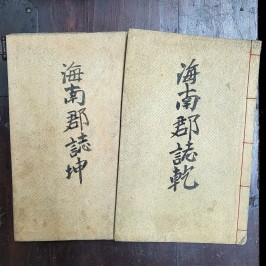 海南郡誌乾
海南郡誌坤